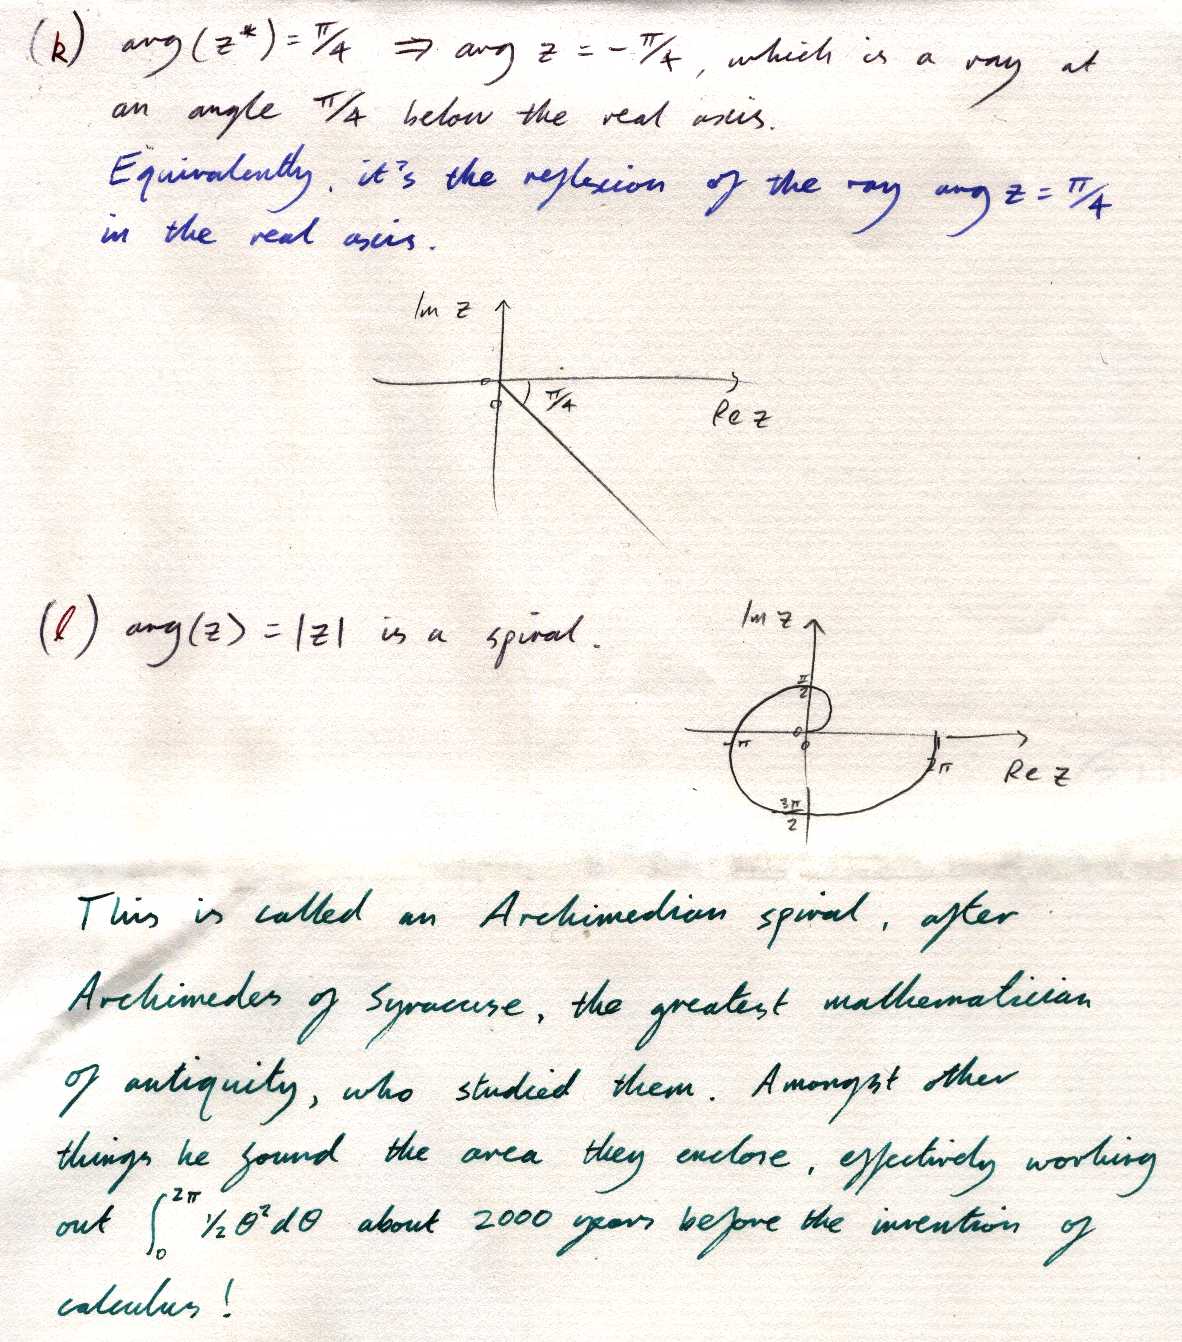 (k) arg(z*) = π/4 ⇒ arg z = -π/4, which is a ray at
an angle π/4 below the real axis.
Equivalently, it's the reflexion of the ray arg z = π/4
in the real axis.
Im z
0
π/4
0
Re z
Im z
(l) arg(z) = |z| is a spiral.
π/2
0
-π
0
2π
Re z
3π/2
This is called an Archimedian spiral, after
Archimedes of Syracuse, the greatest mathematician
of antiquity, who studied them. Amongst other
things he found the area they enclose, effectively working
out ∫₀^2π ½ θ² dθ about 2000 years before the invention of
calculus!